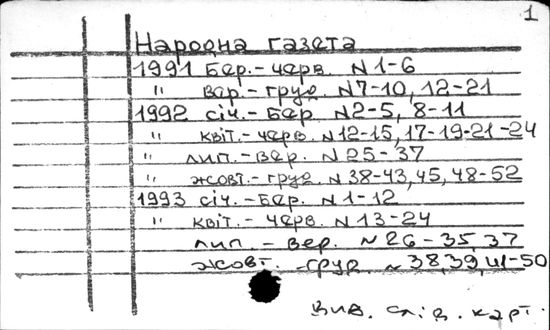 1
Народна газета
1991 Бер.-черв. N1-6
" Вер.-груд N7-10, 12-21
1992 січ.-Бер N2-5, 8-11
" квіт.-черв. N12-15, 17-19-21-24
" лип.-вер. N25-37
" жовт.-груд N38-43, 45, 48-52
1993 січ.-Бер. N1-12
" квіт.-черв. N13-24
лип.-вер. N26-35, 37
жовт.-груд N38, 39, 41-50
карт.